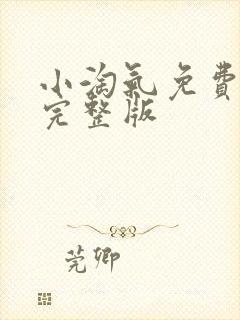 小淘氣免費
完整版
莞卿